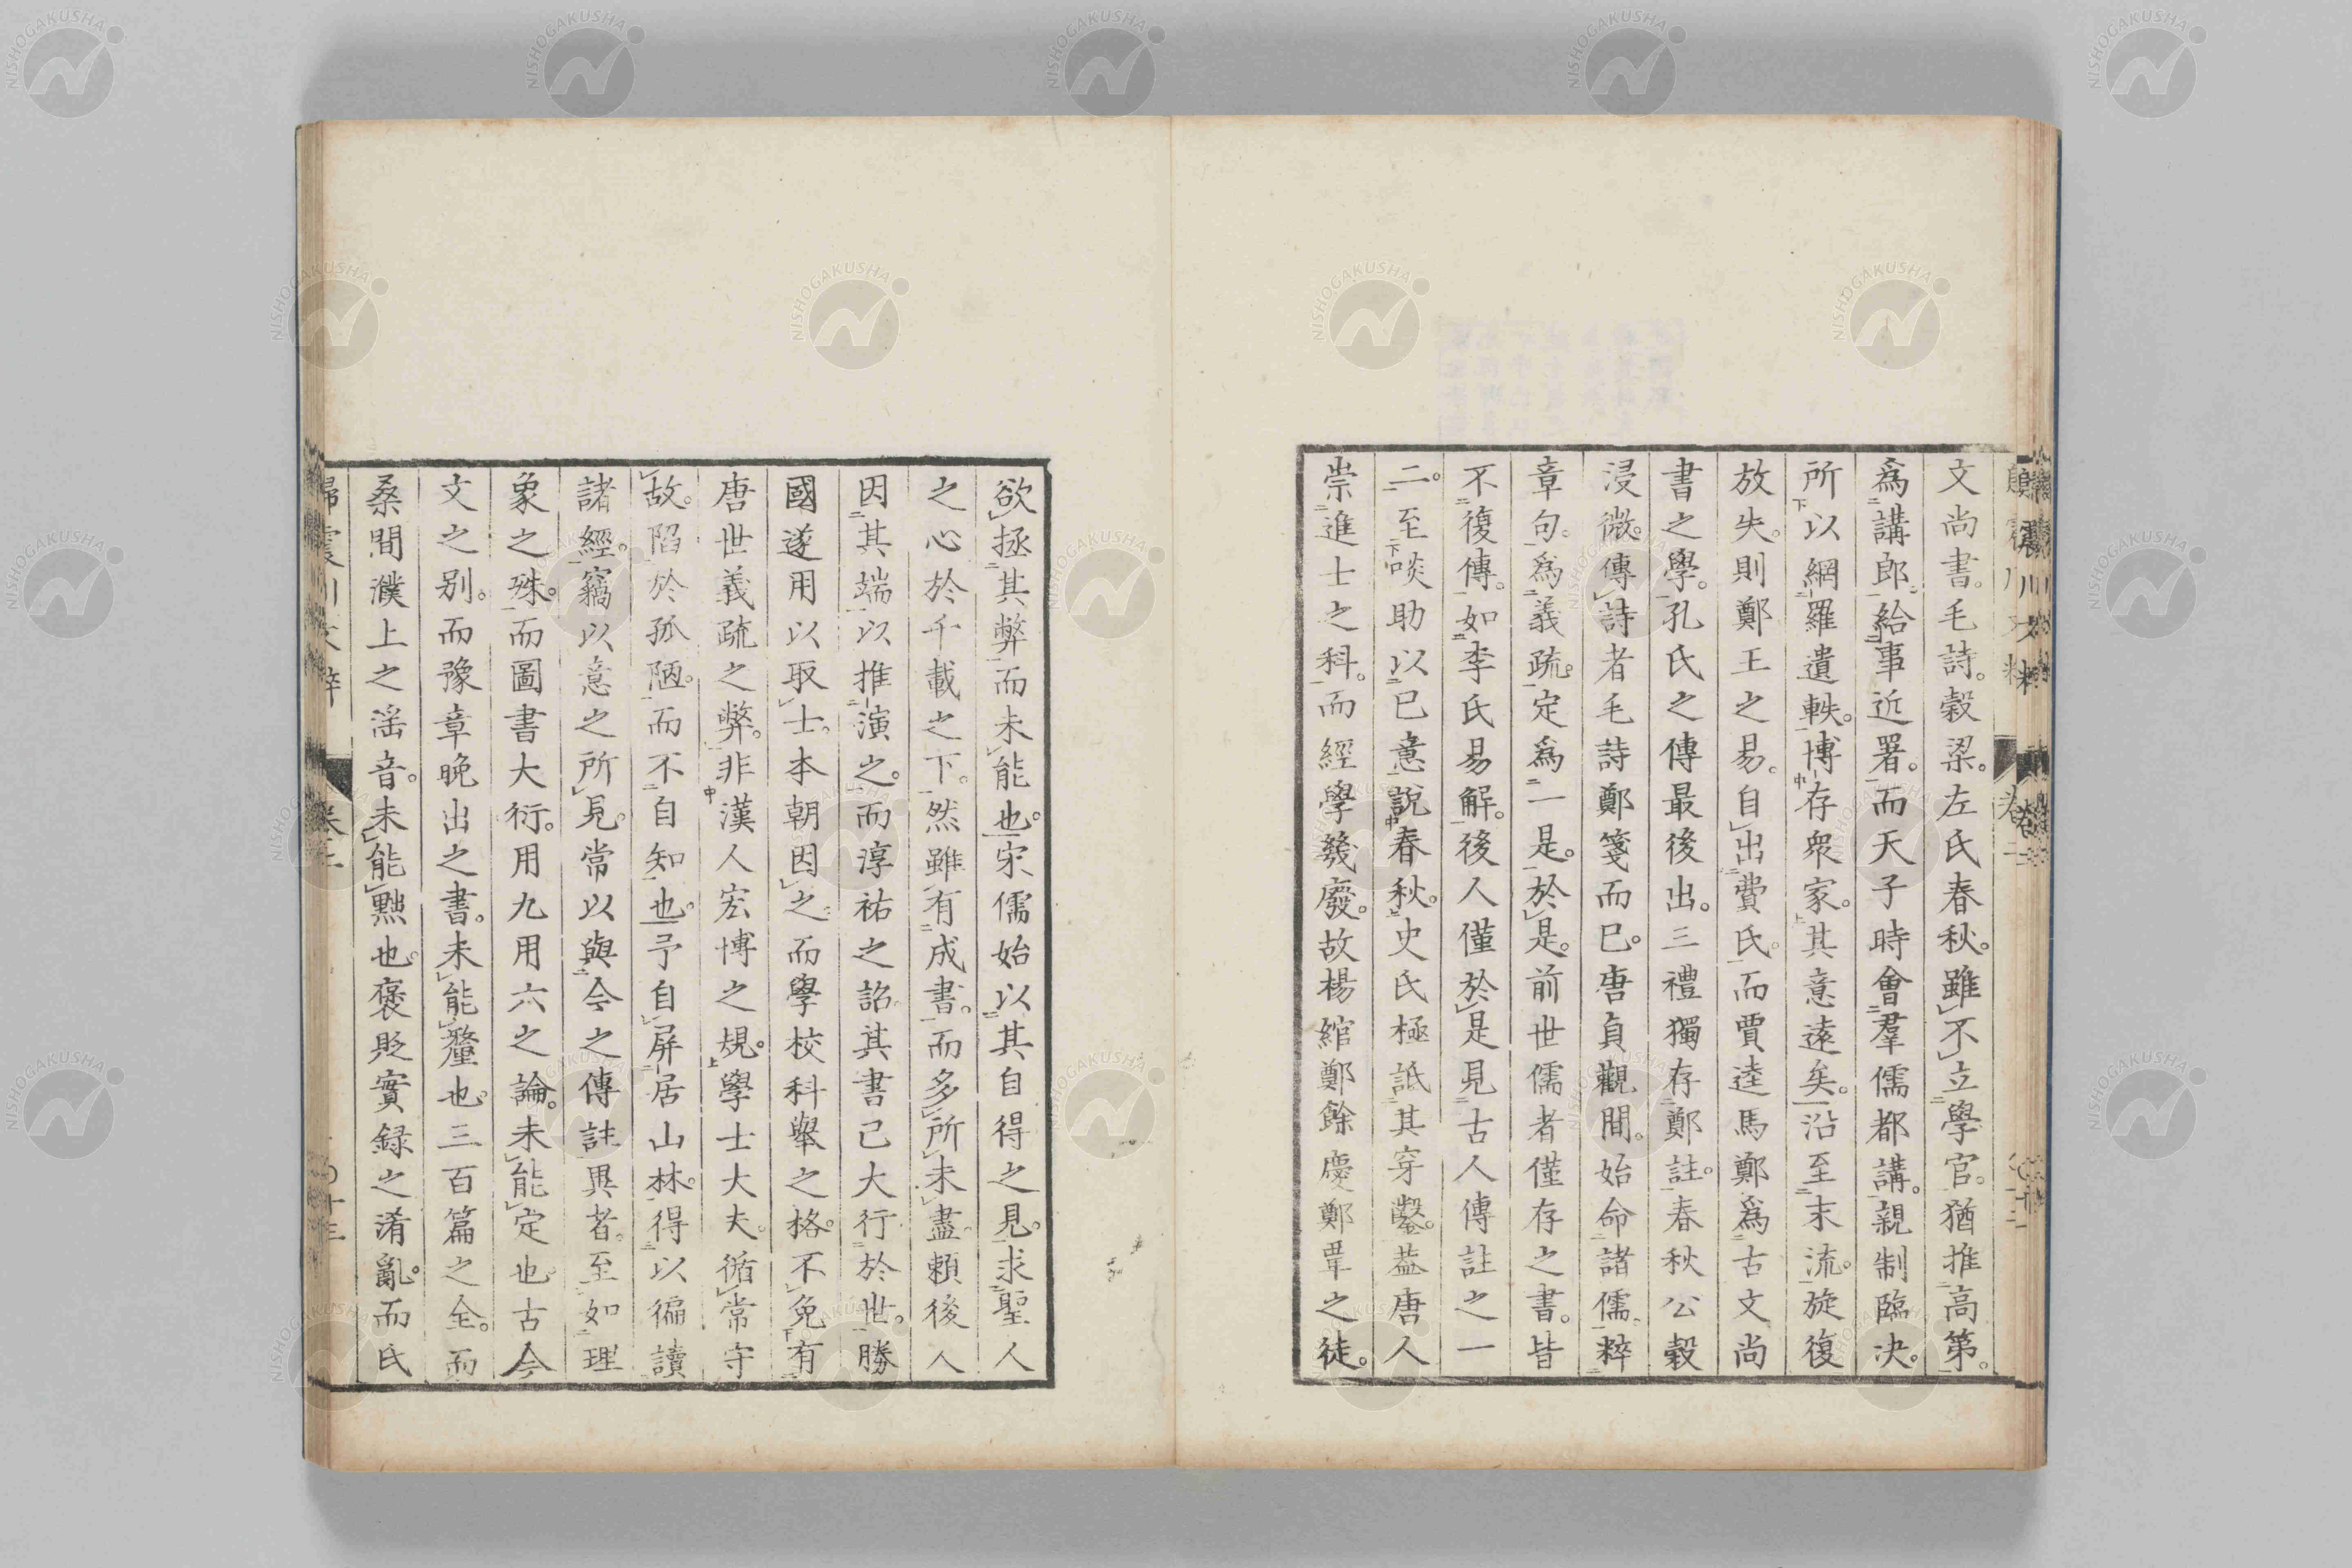 文尚書。毛詩。穀梁。左氏春秋。雖不立學官。猶推高第。
爲講郎。給事近署。而天子時會羣儒都講。親制臨决。
所以網羅遺軼。博存衆家。其意遠矣。沿至末流。旋復
放失。則鄭王之易。自出費氏。而賈逵馬鄭爲古文尚
書之學。孔氏之傳最後出。三禮獨存鄭註。春秋公穀
浸微。傳詩者毛詩鄭箋而已。唐貞觀間。始命諸儒。粹
章句。爲義疏。定爲一是。於是。前世儒者僅存之書。皆
不復傳。如李氏易解。後人僅於是見古人傳註之一
二。至啖助以已意說春秋。史氏極詆其穿鑿。葢唐人
崇進士之科。而經學幾廢。故楊綰鄭餘慶鄭覃之徒。
欲拯其弊而未能也。宋儒始以其自得之見。求聖人
之心於千載之下。然雖有成書。而多所未盡。賴後人
因其端以推演之。而淳祐之詔。其書已大行於世。勝
國遂用以取士。本朝因之。而學校科舉之格。不免有
唐世義疏之弊。非漢人宏博之規。學士大夫。循常守
故。陷於孤陋。而不自知也。予自屏居山林。得以徧讀
諸經。竊以意之所見。常以與今之傳註異者。至如理
象之殊。而圖書大衍。用九用六之論。未能定也。古今
文之别。而豫章晚出之書。未能釐也。三百篇之全。而
桑間濮上之滛音。未能黜也。褒貶實録之淆亂。而氏